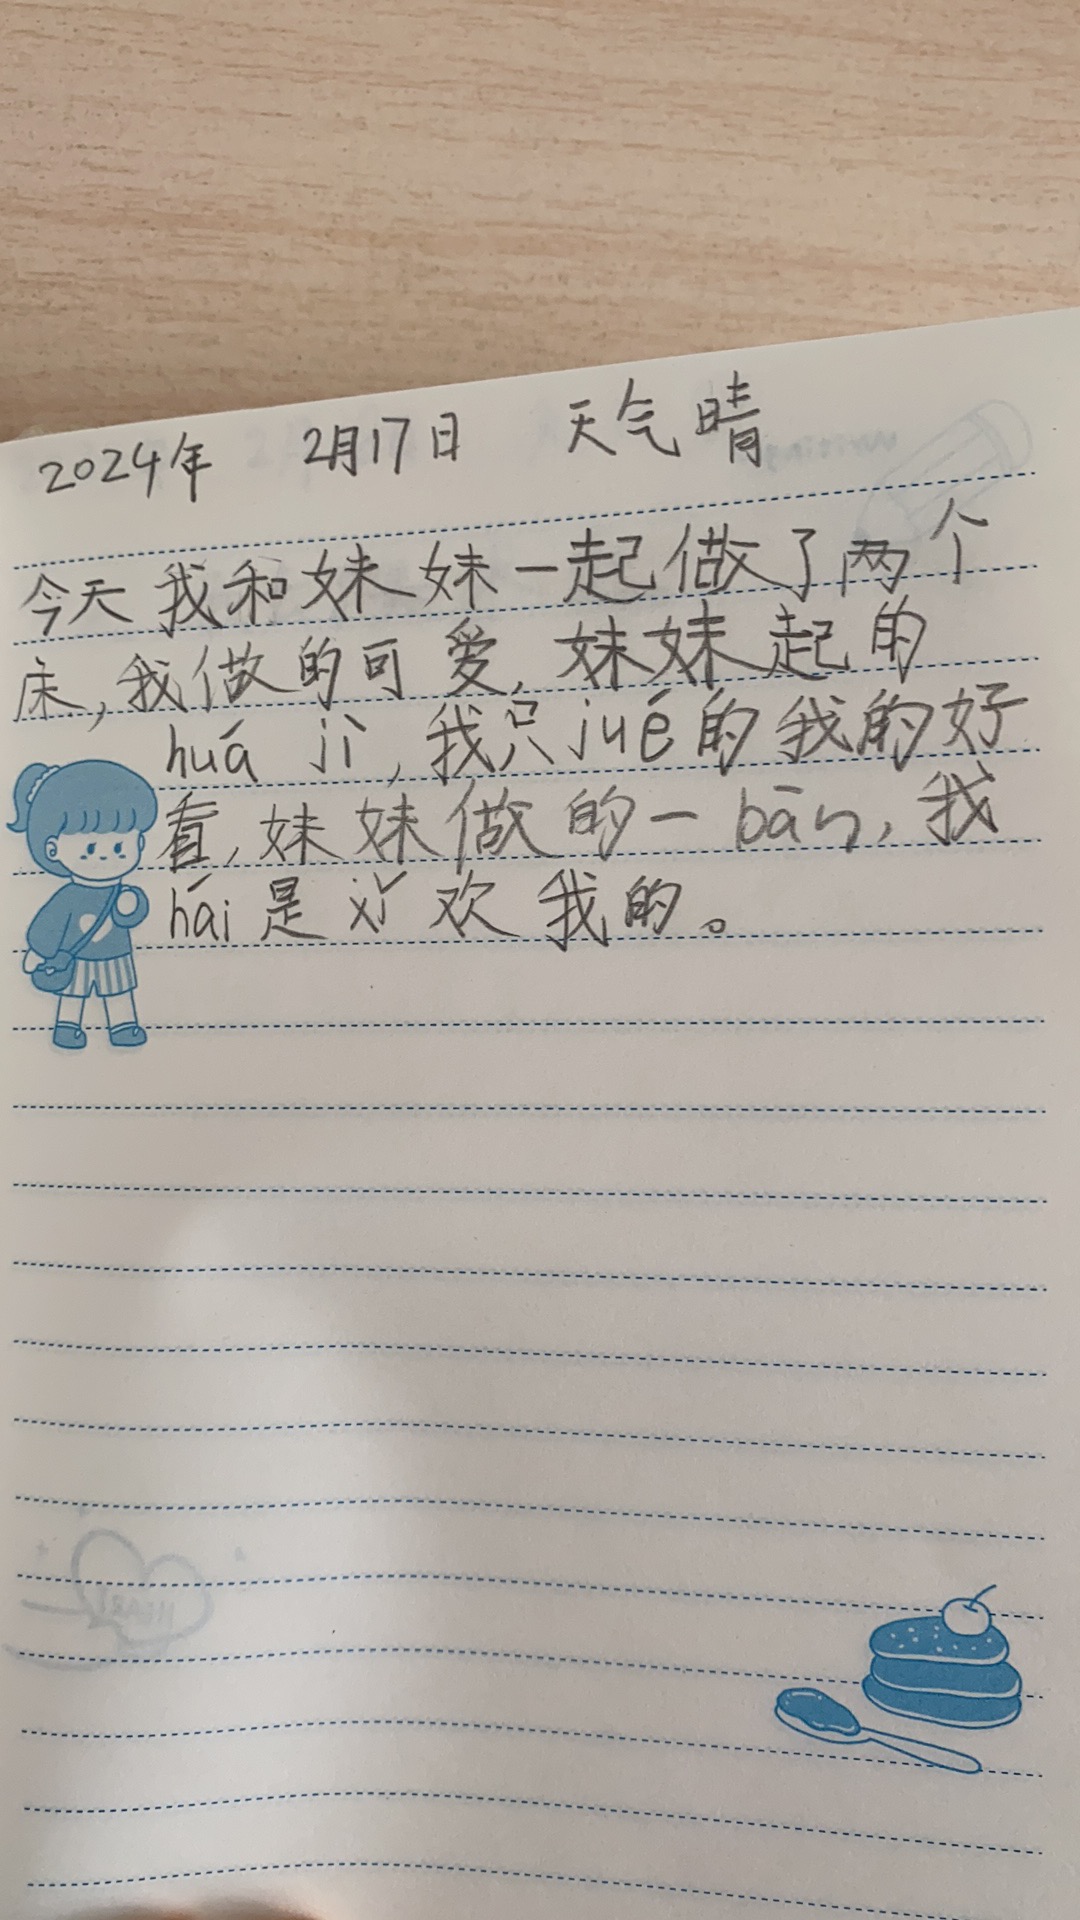 2024年 2月17日 天气晴
今天我和妹妹一起做了两个
床,我做的可爱,妹妹起的
huá jī,我只jué的我的好
看,妹妹做的一bān,我
hái是xǐ欢我的。